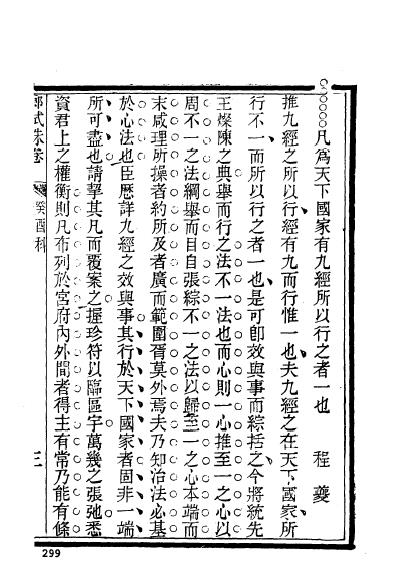 凡爲天下國家有九經所以行之者一也 程夔
推九經之所以行經有九而行惟一也夫九經之在天下國家所
行不一而所以行之者一也是可卽效與事而綜括之今將統先
王燦陳之典舉而行之法不一法也而心則一心推至一之心以
周不一之法綱舉而目自張綜不一之法以歸至一之心本端而
末咸理所操者約所及者廣而範圍胥莫外焉夫乃知治法必基
於心法也臣歷詳九經之效與事其行於天下國家者固非一端
所可盡也請挈其凡而覆案之握珍符以臨區宇萬幾之張弛悉
資君上之權衡則凡布列於宮府內外閒者得主有常乃能有條
鄉試硃卷 癸酉科 三
299